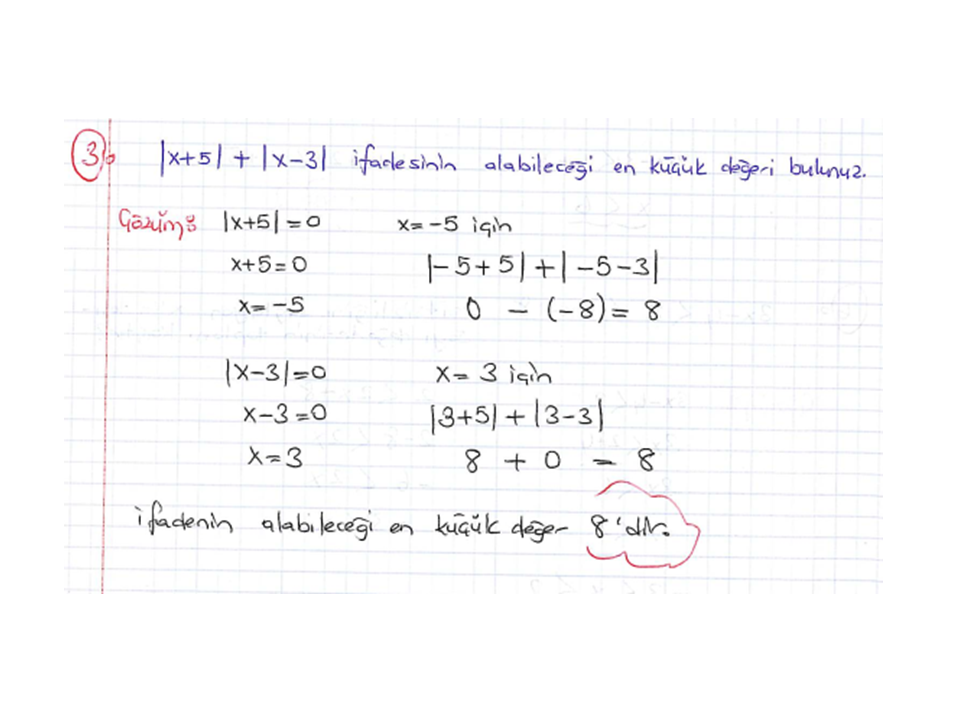 3) |x+5| + |x-3| ifadesinin alabileceği en küçük değeri bulunuz.
Çözüm: |x+5| = 0 x = -5 için
x+5 = 0 |-5+5| + |-5-3|
x = -5 0 - (-8) = 8
|x-3| = 0 x = 3 için
x-3 = 0 |3+5| + |3-3|
x = 3 8 + 0 = 8
ifadenin alabileceği en küçük değer 8'dir.